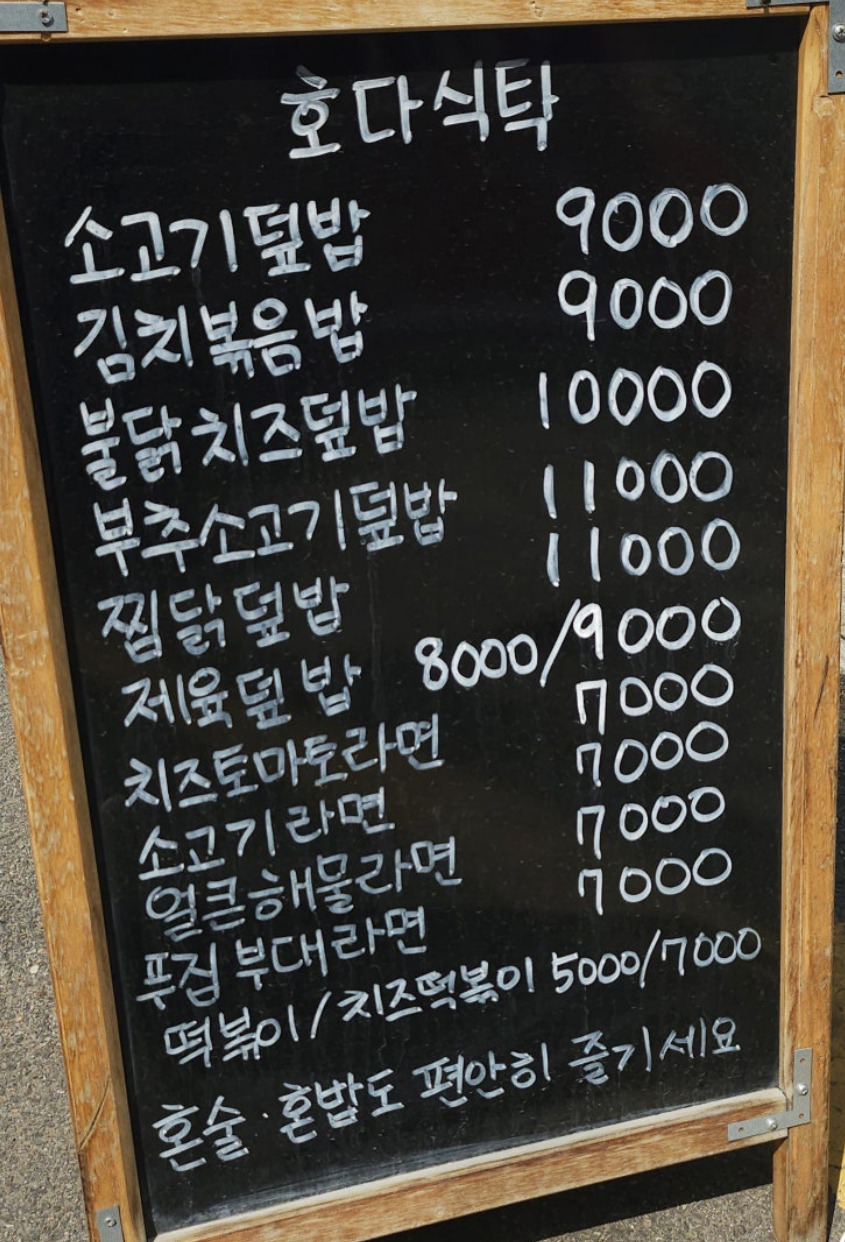 호다식탁
소고기덮밥 9000
김치볶음밥 9000
불닭치즈덮밥 10000
부추소고기덮밥 11000
찜닭덮밥 11000
제육덮밥 8000/9000
치즈토마토라면 7000
소고기라면 7000
얼큰해물라면 7000
푸집부대라면 7000
떡볶이/치즈떡볶이 5000/7000
혼술·혼밥도 편안히 즐기세요